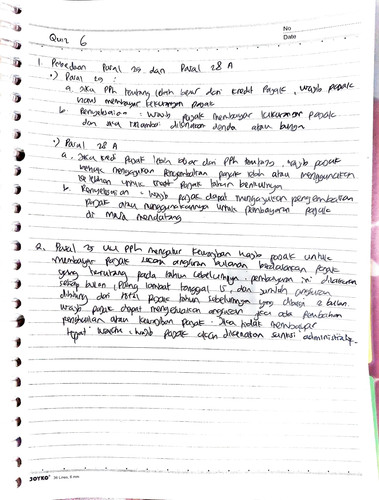 No
Date
Quiz 6
1. Perbedaan Pasal 29 dan Pasal 28 A
•) Pasal 29 :
a. Jika PPh terutang lebih besar dari kredit Pajak, wajib pajak
harus membayar kekurangan pajak
b. Penyelesaian : Wajib Pajak membayar kekurangan pajak
dan jika terlambat dikenakan denda atau bunga
•) Pasal 28 A
a. Jika kred Pajak lebih besar dari PPh terutang, wajib pajak
berhak mengajukan Pengembalian pajak lebih atau menggunakan
kelebihan untuk kredit Pajak tahun berikutnya
b. Penyelesaian = Wajib pajak dapat mengajukan pengembalian
Pajak atau menggunakannya untuk pembayaran pajak
di masa mendatang
2. Pasal 25 UU PPh mengatur kewajiban wajib pajak untuk
membayar pajak secara angsuran bulanan berdasarkan pajak
yang terutang pada tahun sebelumnya. pembayaran ini dilakukan
setiap bulan, Paling lambat tanggal 15, dan jumlah angsuran
dihitung dari total pajak tahun sebelumnya yang dibagi 12 bulan.
Wajib pajak dapat menyesuaikan angsuran jika ada perubahan
penghasilan atau kewajiban pajak. Jika tidak membayar
tepat waktu, wajib pajak akan dikenakan sanksi administratif.
JOYKO
36 Lines, 6 mm